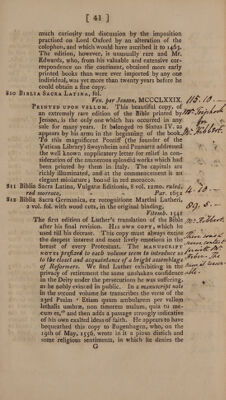 [ 41 ]
much curiosity and discussion by the imposition
practised on Lord Oxford by an alteration of the
colophon, and which would have ascribed it to 1463.
The edition, however, is unusually rare and Mr.
Edwards, who, from his valuable and extensive cor-
respondence on the continent, obtained more early
printed books than were ever imported by any one
individual, was yet more than twenty years before he
could obtain a fine copy.
810 BIBLIA SACRA LATINA, fol.
Ven. per Jenson, MCCCLXXIX.
PRINTED UPON VELLUM. This beautiful copy, of
an extremely rare edition of the Bible printed by
Jenson, is the only one which has occurred in any
sale for many years. It belonged to Sixtus IV. as
appears by his arms in the beginning of the book.
To this magnificent Pontiff (the founder of the
Vatican Library) Sweynheim and Pannartz addressed
the well known supplicatory letter for relief in con-
sideration of the numerous splendid works which had
been printed by them in Italy. The capitals are
richly illuminated, and at the commencement is an
elegant miniature; bound in red morocco.
811 Biblia Sacra Latina, Vulgatæ Editionis, 8 vol. 12mo. ruled,
red morocco, Par. 1652
812 BIBLIA SACRA GERMANICA, ex recognitione Martini Lutheri,
2 vol. fol. with wood cuts, in the original binding,
Vitemb. 1541
The first edition of Luther's translation of the Bible
after his final revision. HIS OWN COPY, which he
used till his decease. This copy must always excite
the deepest interest and most lively emotions in the
breast of every Protestant. THE MANUSCRIPT
NOTES prefixed to each volume seem to introduce us
to the closet and acquaintance of a bright assemblage
of Reformers. We find Luther exhibiting in the
privacy of retirement the same unshaken confidence
in the Deity under the persecutions he was suffering,
as he nobly evinced in public. In a manuscript note
in the second volume he transcribes the verse of the
23rd Psalm ‘ Etiam quum ambularem per vallem
lethalis umbræ, non timerem malum, quia tu me-
cum es,” and then adds a passage strongly indicative
of his own exalted ideas of faith. He appears to have
bequeathed this copy to Bugenhagen, who, on the
19th of May, 1556, wrote in it a pious distich and
some religious sentiments, in which he denies the
G
115.10
for
Mr. Hibbert.
4.10
89.5
Mr. Hibbert.